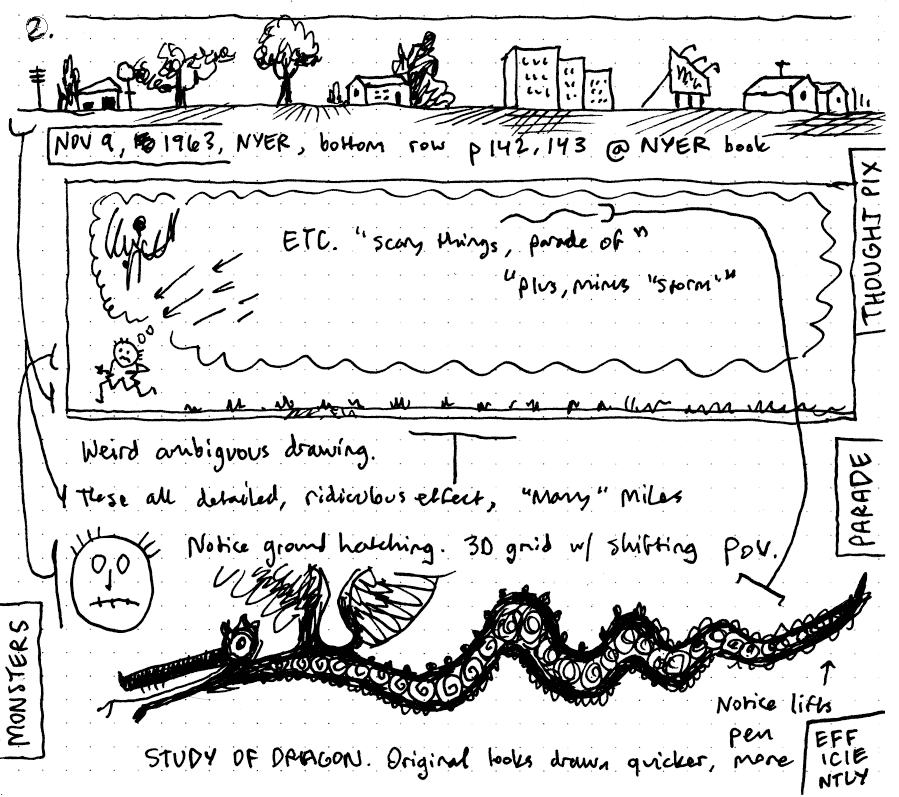 2.
NOV 9, 1963, NYER, bottom row p 142, 143 @ NYER book
THOUGHT PIX
ETC. "scary things, parade of"
"plus, minus "storm""
Weird ambiguous drawing.
These all detailed, ridiculous effect, "many" miles
PARADE
Notice ground hatching. 3D grid w/ shifting POV.
MONSTERS
Notice lifts
pen
STUDY OF DRAGON. Original looks drawn quicker, more
EFF
ICIE
NTLY